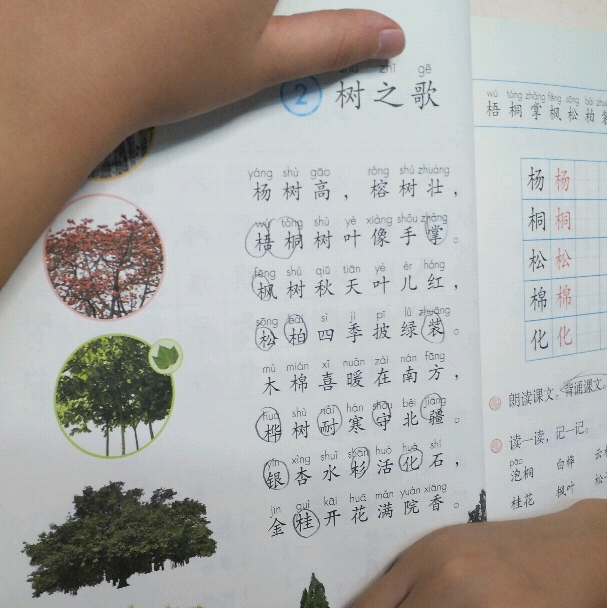 ② 树之歌
yáng shù gāo róng shù zhuàng
杨树高，榕树壮，
wú tóng shù yè xiàng shǒu zhǎng
梧桐树叶像手掌。
fēng shù qiū tiān yè ér hóng
枫树秋天叶儿红，
sōng bǎi sì jì pī lǜ zhuāng
松柏四季披绿装。
mù mián xǐ nuǎn zài nán fāng
木棉喜暖在南方，
huà shù nài hán shǒu běi jiāng
桦树耐寒守北疆。
yín xìng shuǐ shān huó huà shí
银杏水杉活化石，
jīn guì kāi huā mǎn yuàn xiāng
金桂开花满院香。
wú tóng zhǎng fēng sōng bǎi
梧桐掌枫松柏
杨 杨
桐 桐
松 松
棉 棉
化 化
朗读课文。背诵课文。
读一读，记一记。
pāo
泡桐 白桦
桂花 枫叶